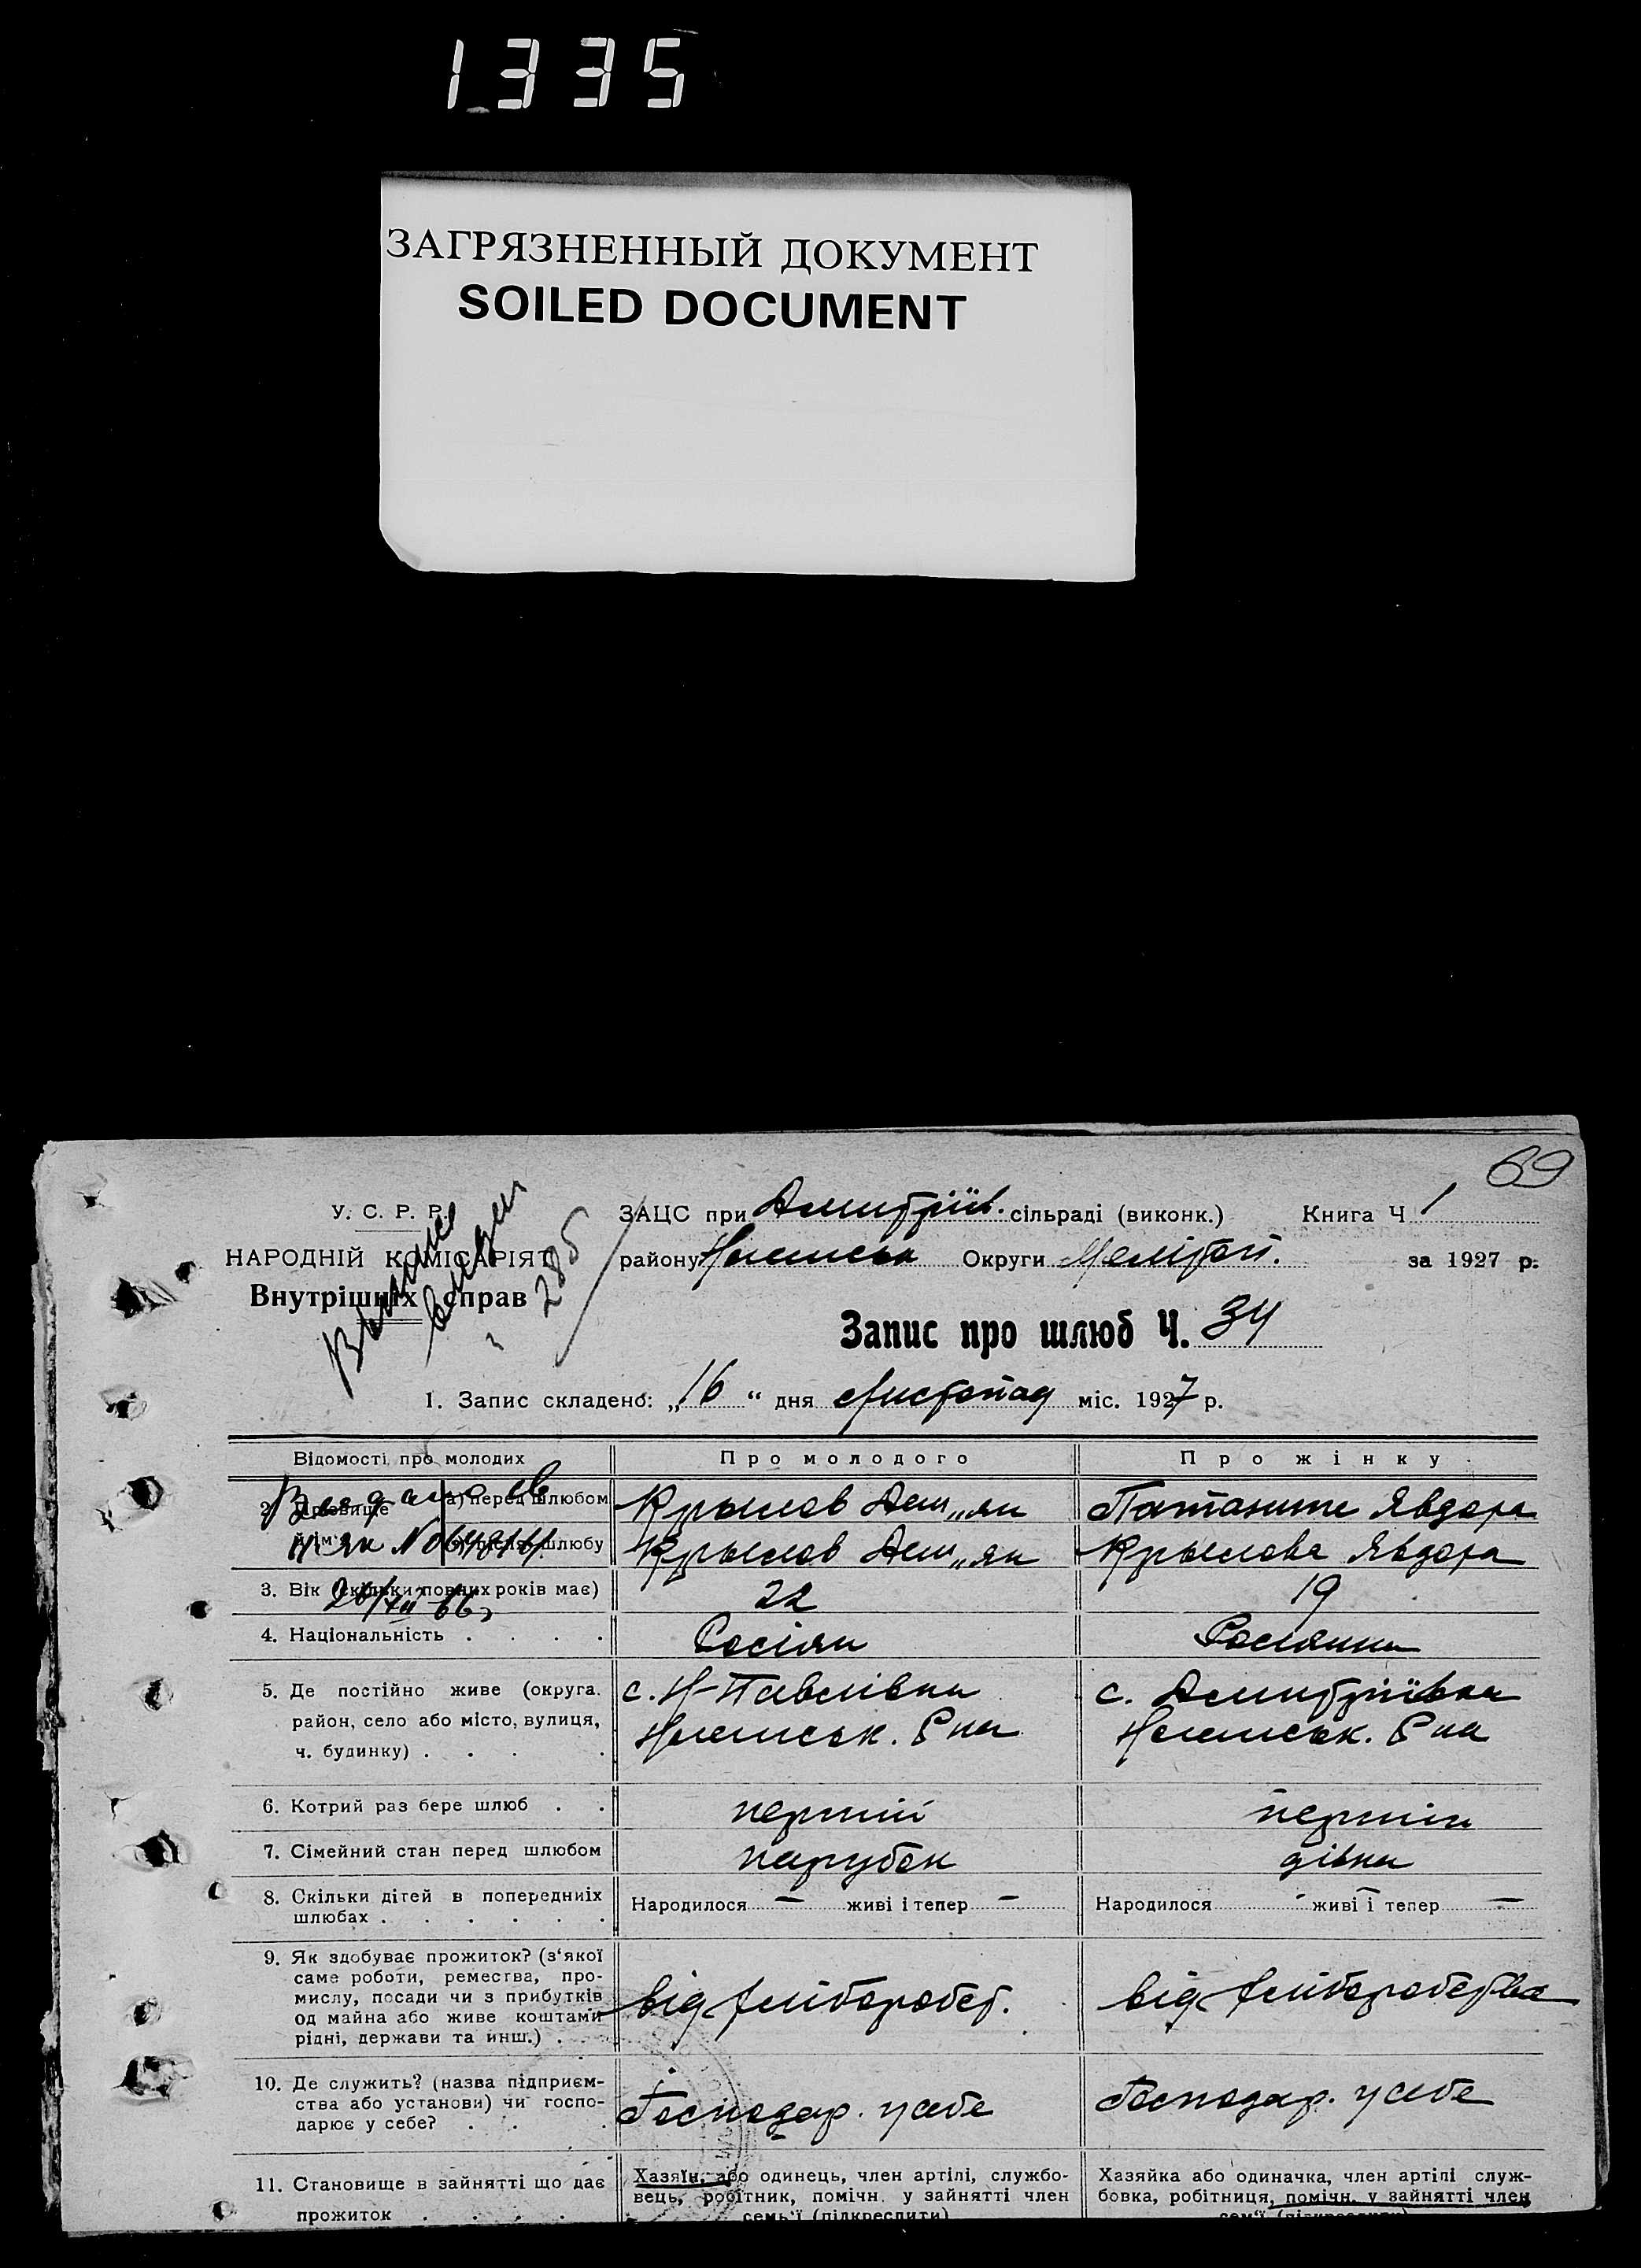 1335
ЗАГРЯЗНЕННЫЙ ДОКУМЕНТ
SOILED DOCUMENT
69
У. С. Р. Р.
НАРОДНІЙ КОМІСАРІЯТ
Внутрішніх справ
285
ЗАЦС при Дмитріїв. сільраді (виконк.) Книга Ч 1
району Округи Мелітоп. за 1927 р.
Запис про шлюб Ч. 34
1. Запис складено: „16“ дня Листопад міс. 1927 р.
Відомості про молодих
Про молодого
Про жінку
2. Прізвище й ім'я
а) перед шлюбом
Крылов Дем„ян
Явдора
б) після шлюбу
Крылов Дем„ян
Крылова Явдора
3. Вік (скільки повних років має)
22
19
4. Національність . . . .
Росіян
Росіянка
5. Де постійно живе (округа,
район, село або місто, вулиця,
ч. будинку) . . . .
с. Н-Павлівка
Р на
с. Дмитріївка
Р на
6. Котрий раз бере шлюб . .
перший
перший
7. Сімейний стан перед шлюбом
парубок
дівка
8. Скільки дітей в попередниіх
шлюбах . . . . . .
Народилося — живі і тепер —
Народилося - живі і тепер —
9. Як здобуває прожиток? (з'якої
саме роботи, ремества, про-
мислу, посади чи з прибутків
од майна або живе коштами
рідні, держави та инш.) .
від хлібороб.
від хліборобства
10. Де служить? (назва підприєм-
ства або установи) чи госпо-
дарює у себе? . . .
Господар. у себе
Господар. у себе
11. Становище в зайнятті що дає
прожиток . . . . .
Хазяїн, або одинець, член артілі, службо-
вець, робітник, помічн. у зайнятті член
семь'ї (підкреслити)
Хазяйка або одиначка, член артілі служ-
бовка, робітниця, помічн. у зайнятті член
сем'ї (підкреслити)